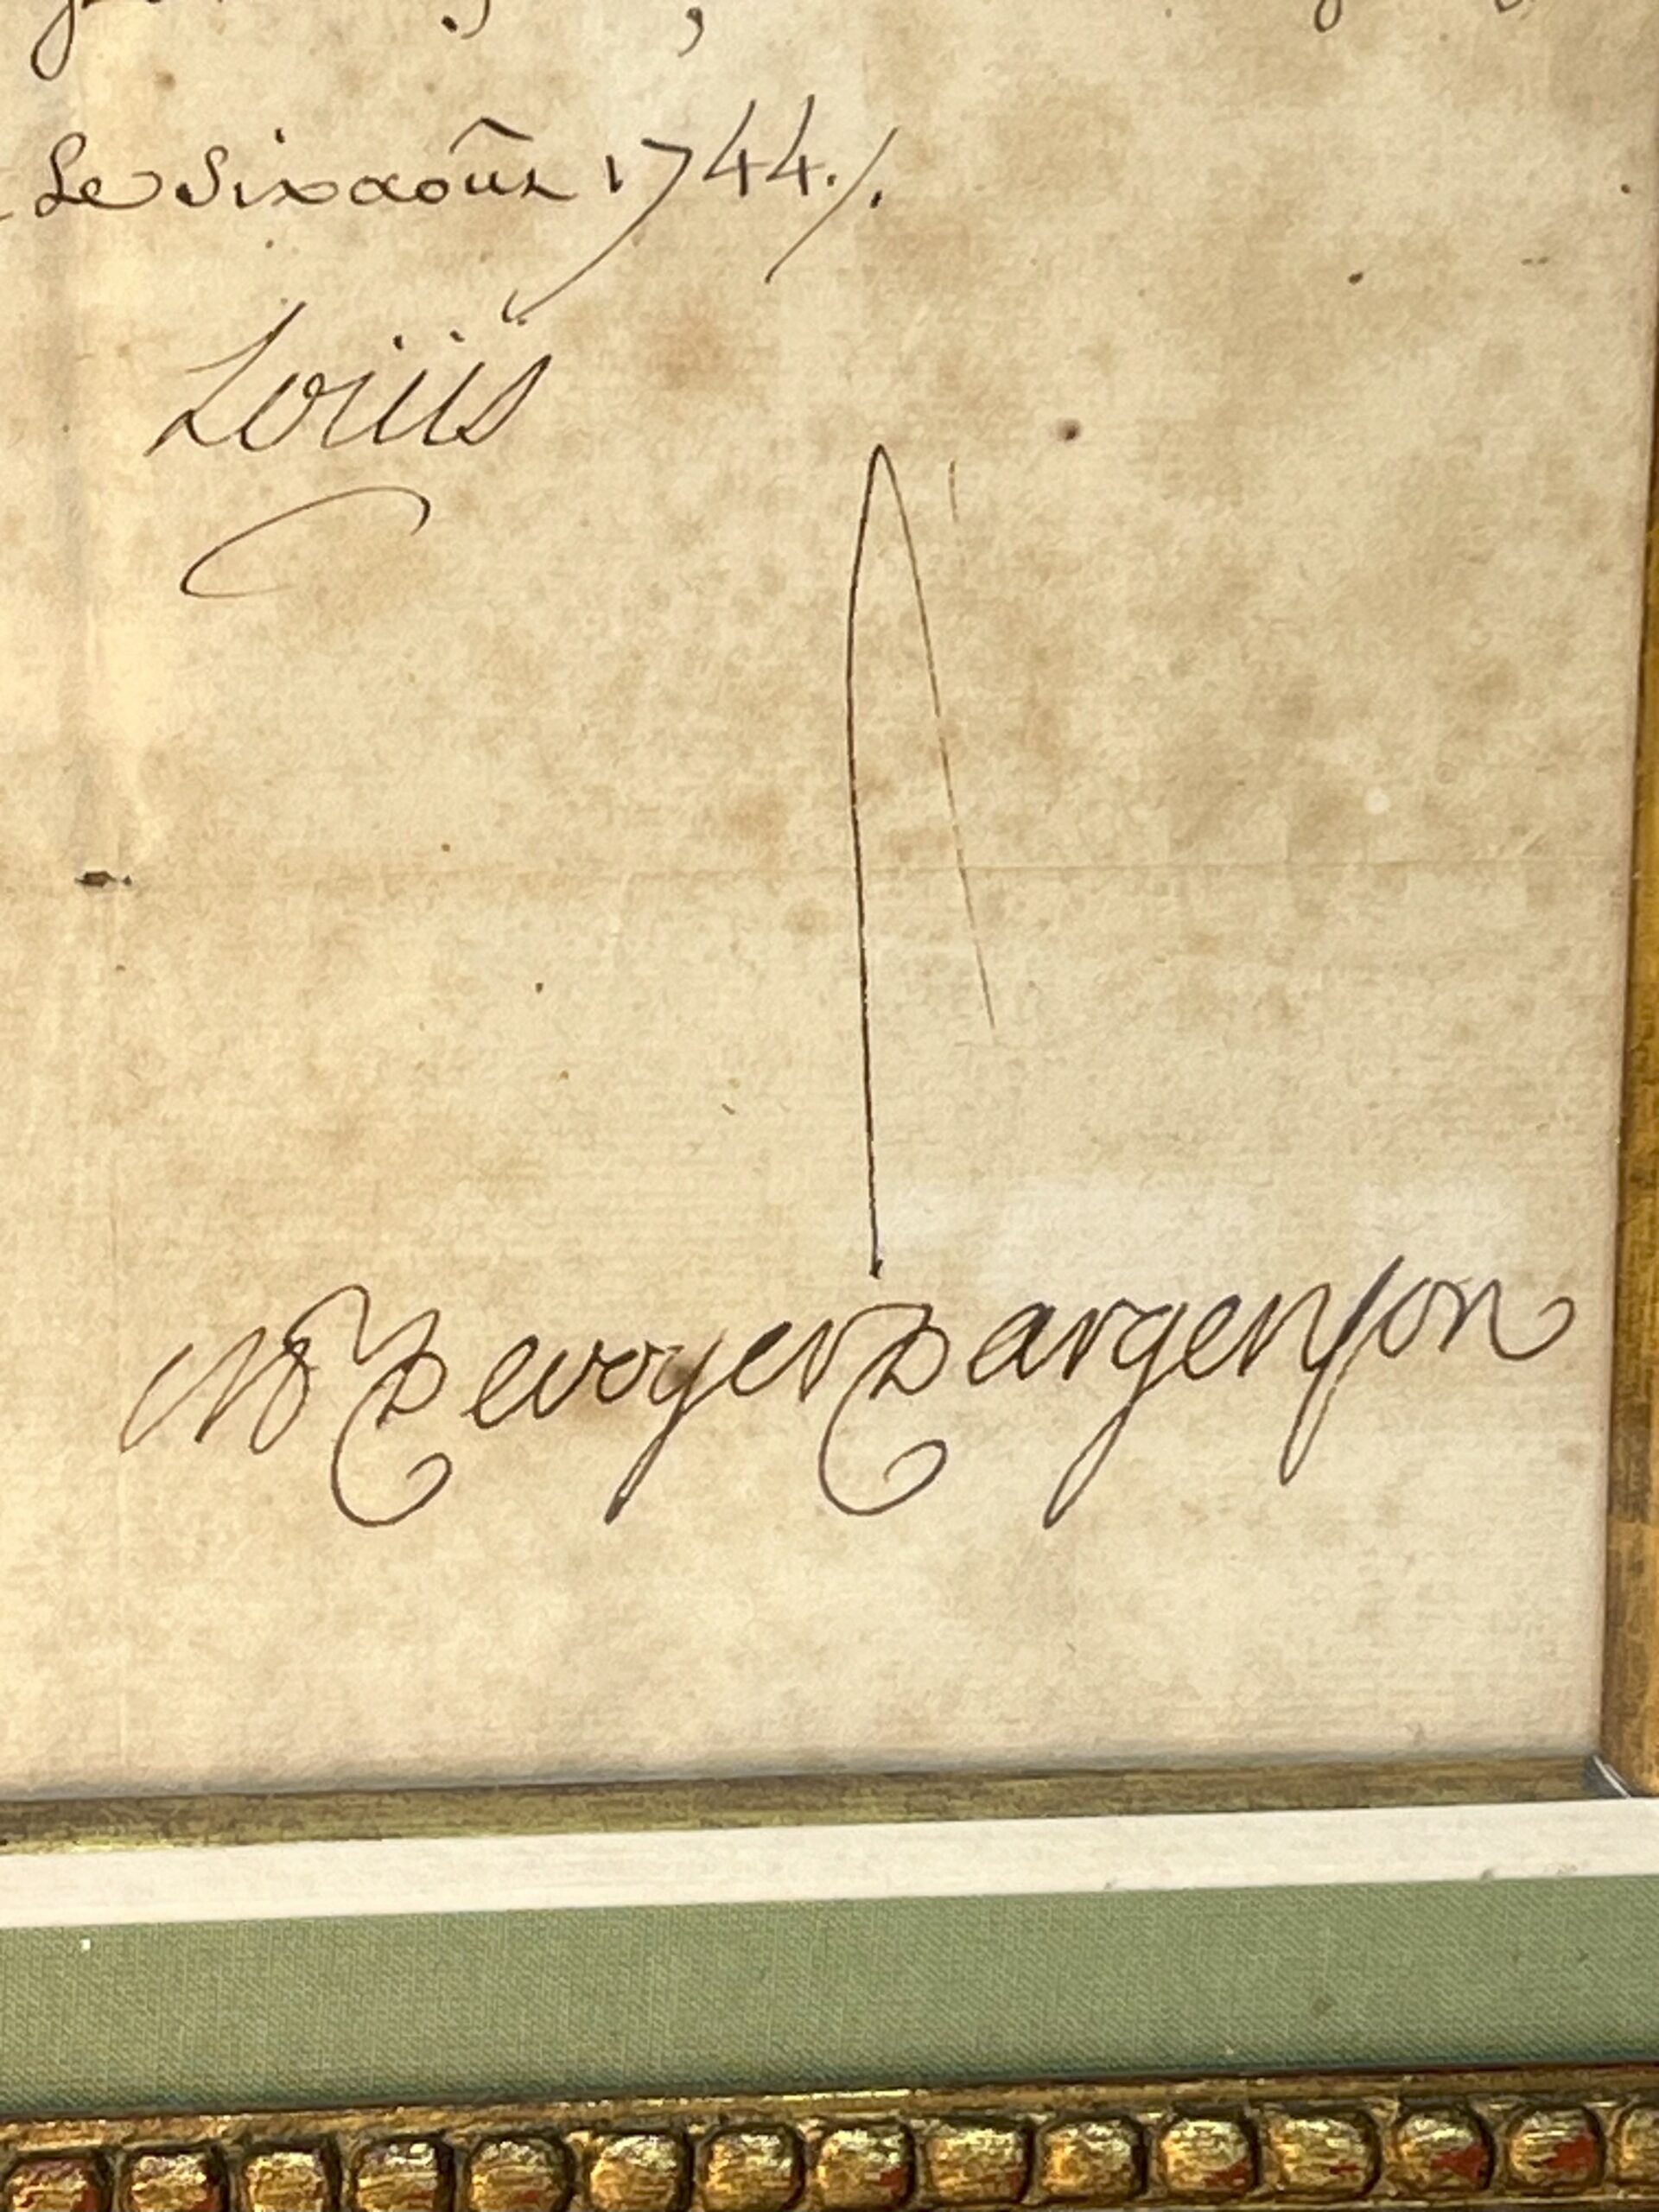 Le Six août 1744 ./.
Louis
M P de voyer d'argenson